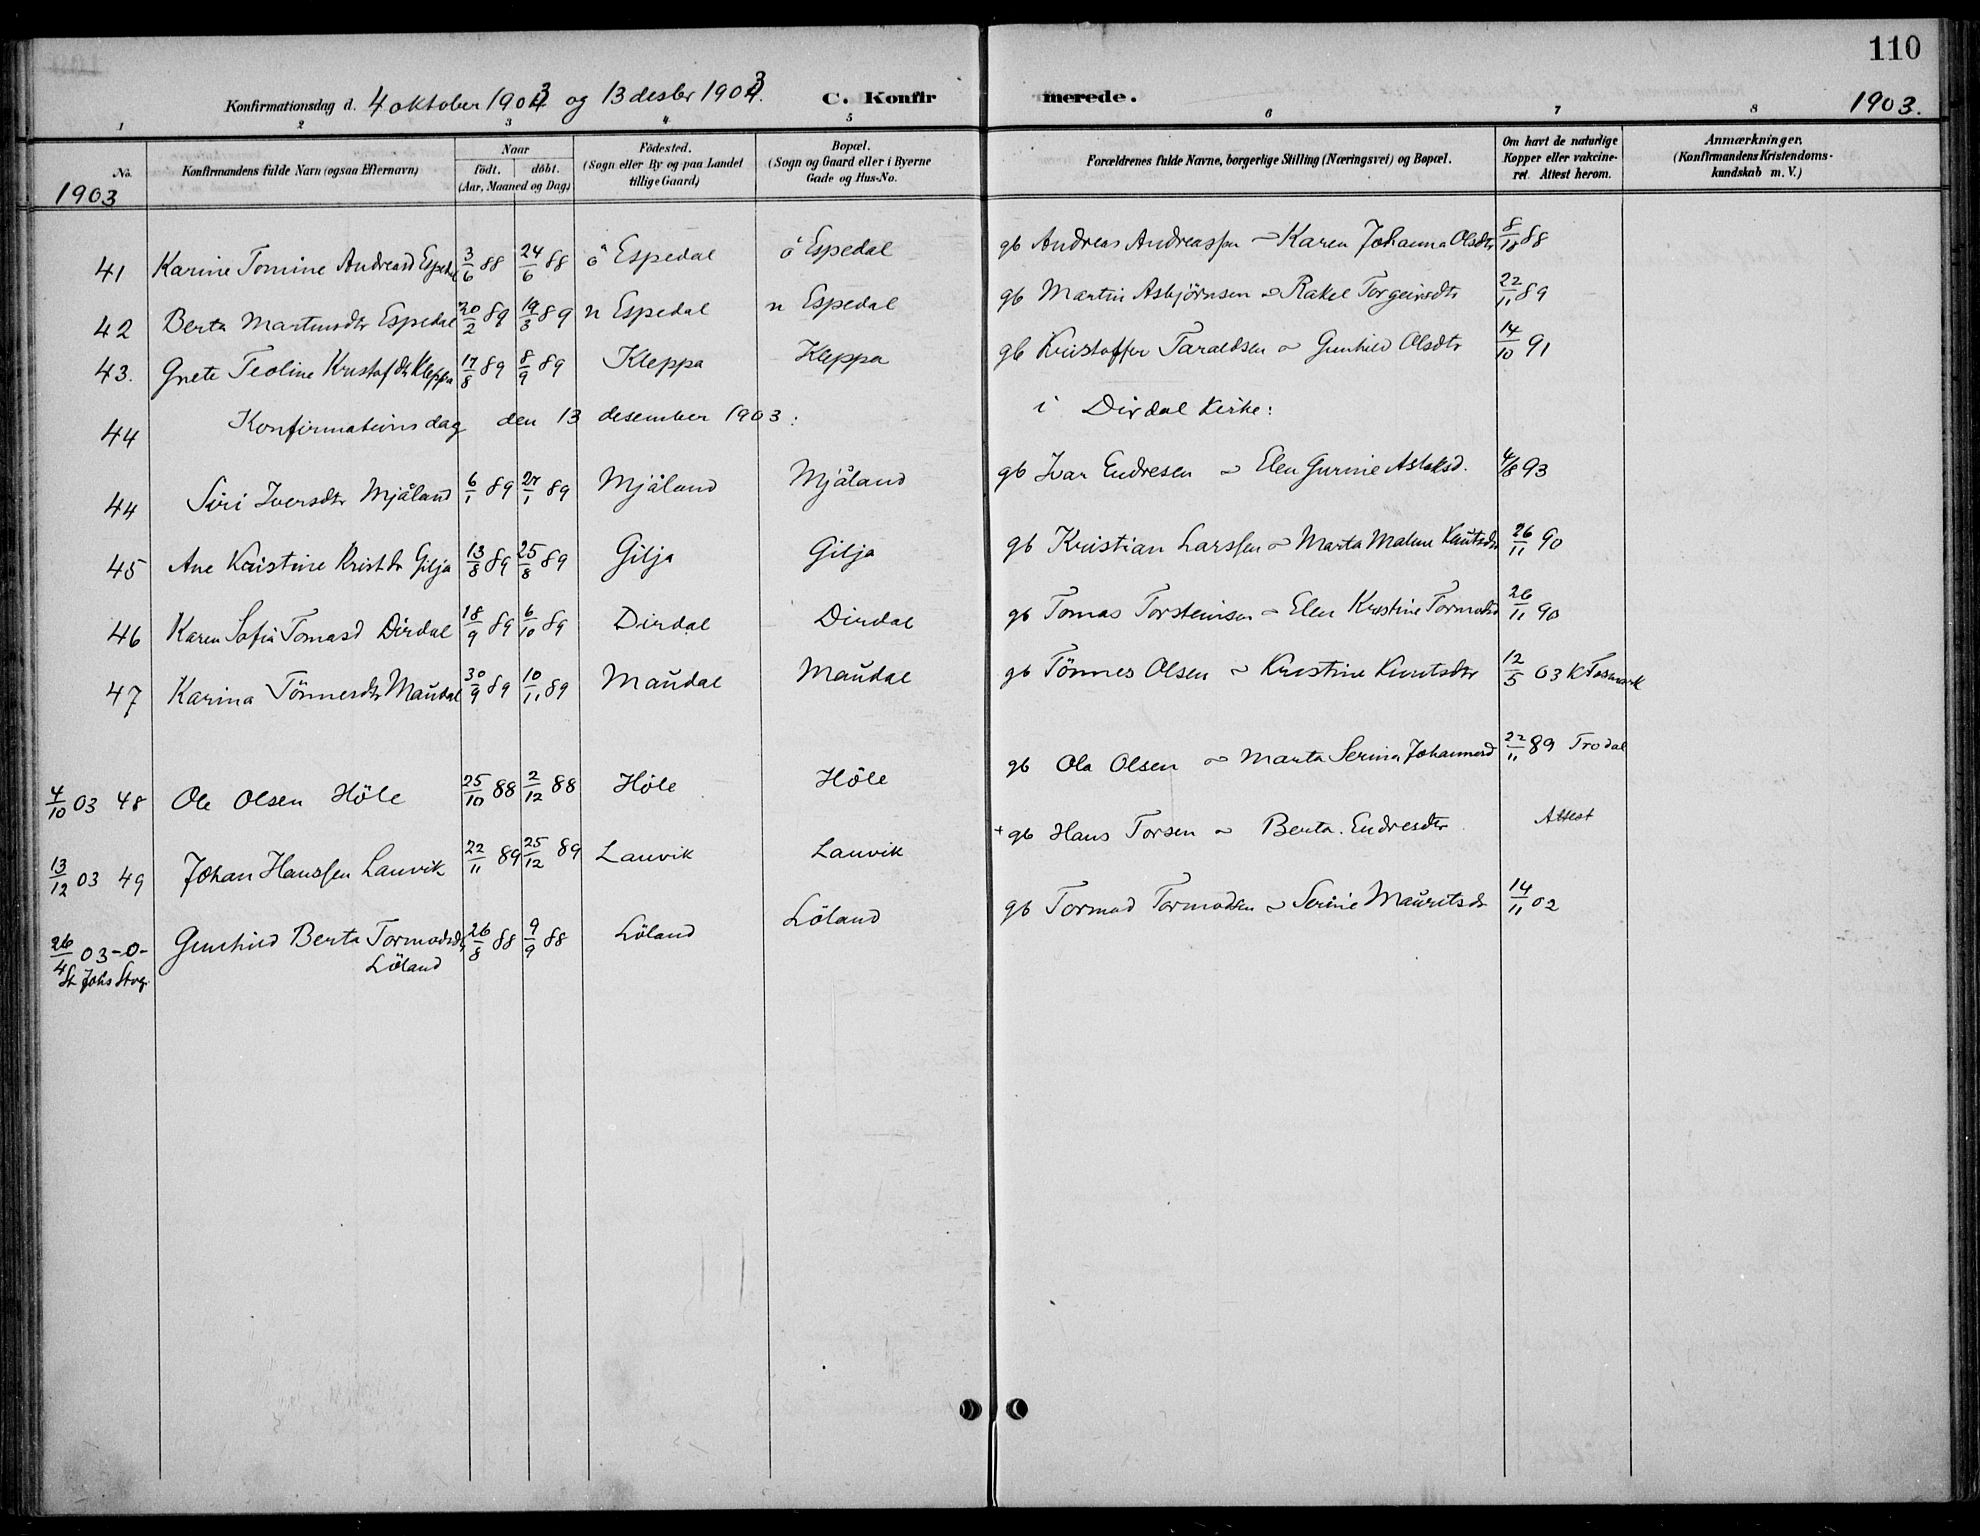 110
Konfirmationsdag d. 4 oktober 1903 og 13 desbr 1903. C. Konfirmerede. 1903.
1 2 3 4 5 6 7 8
No. Konfirmandens fulde Navn (ogsaa Efternavn) Naar födt. döbt. (Aar, Maaned og Dag) Födested. (Sogn eller By og paa Landet tillige Gaard) Bopæl. (Sogn og Gaard eller i Byerne Gade og Hus-No. Forældrenes fulde Navne, borgerlige Stilling (Næringsvei) og Bopæl. Om havt de naturlige Kopper eller vakcineret. Attest herom. Anmærkninger. (Konfirmandens Kristendomskundskab m. V.)
1903
41 Karine Tomine Andreasd Espedal 3/6 88 24/6 88 ö Espedal ö Espedal gb Andreas Andreassen ~ Karen Johanna Olsdtr 8/10 88
42 Berta Martinsdtr Espedal 20/2 89 19/3 89 n Espedal n Espedal gb Martin Asbjörnsen ~ Rakel Torgeirsdtr 22/11 89
43. Grete Teoline Kristofdtr Kleppa 17/8 89 8/9 89 Kleppa Kleppa gb Kristoffer Taraldsen ~ Gunhild Olsdtr 14/10 91
44 Konfirmationsdag den 13 desember 1903: i Dirdal Kirke:
44 Siri Iversdtr Mjåland 6/1 89 27/1 89 Mjåland Mjåland gb Ivar Endresen ~ Elen Gurine Aslaksd. 4/8 93
45 Ane Kristine Kristdr Gilja 13/8 89 25/8 89 Gilja Gilja gb Kristian Larssen ~ Marta Malene Knutsdr 26/11 90
46 Karen Sofie Tomasd Dirdal 18/9 89 6/10 89 Dirdal Dirdal gb Tomas Torsteinsen ~ Elen Kristine Tormodsd 26/11 90
47 Karina Tönnesdtr Maudal 30/9 89 10/11 89 Maudal Maudal gb Tönnes Olsen ~ Kristine Knutsdtr 12/5 03 K
4/10 03 48 Ole Olsen Höle 25/10 88 2/12 88 Höle Höle gb Ola Olsen ~ Marta Serina Johannesd 22/11 89 Trodal
13/12 03 49 Johan Hanssen Lauvik 22/11 89 25/12 89 Lauvik Lauvik + gb Hans Torsen ~ Berta Endresdtr Attest
26/4 03 -0- Gunhild Berta Tormodsdtr 26/8 88 9/9 88 Löland Löland gb Tormod Tormodsen ~ Serine Mauritsdr 14/11 02
St Johs Stvg. Löland